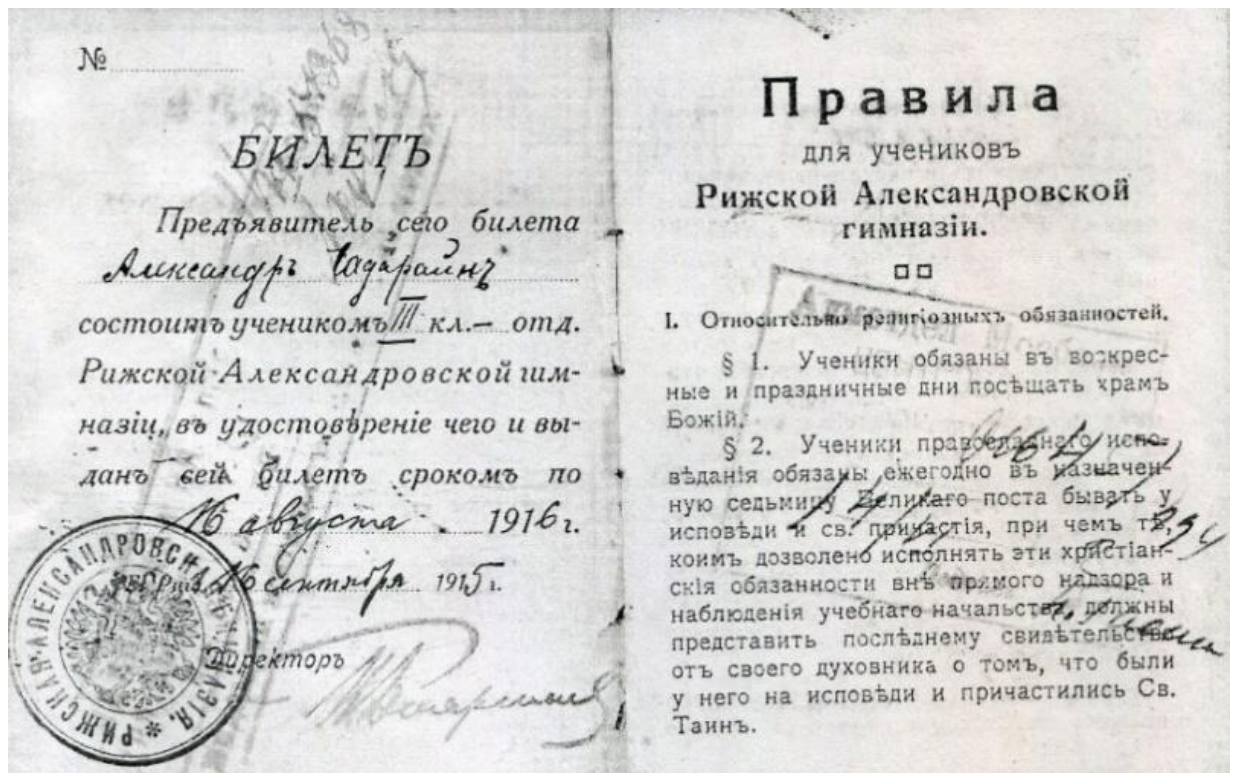 №
БИЛЕТЪ
Предъявитель сего билета
Александръ
состоитъ ученикомъ III кл.— отд.
Рижской Александровской гим-
назіи, въ удостовѣреніе чего и вы-
данъ сей билетъ срокомъ по
16 августа 1916 г.
16 сентября 1915 г.
Директоръ
РИЖСКАЯ АЛЕКСАНДРОВСКАЯ ГИМНАЗІЯ
Правила
для учениковъ
Рижской Александровской
гимназіи.
I. Относительно религіозныхъ обязанностей.
§ 1. Ученики обязаны въ воскрес-
ные и праздничные дни посѣщать храмъ
Божій.
§ 2. Ученики православнаго испо-
вѣданія обязаны ежегодно въ назначен-
ную седьмицу Великаго поста бывать у
исповѣди и св. причастія, при чемъ тѣ,
коимъ дозволено исполнять эти христіан-
скія обязанности внѣ прямого надзора и
наблюденія учебнаго начальства, должны
представить послѣднему свидѣтельство
отъ своего духовника о томъ, что были
у него на исповѣди и причастились Св.
Таинъ.